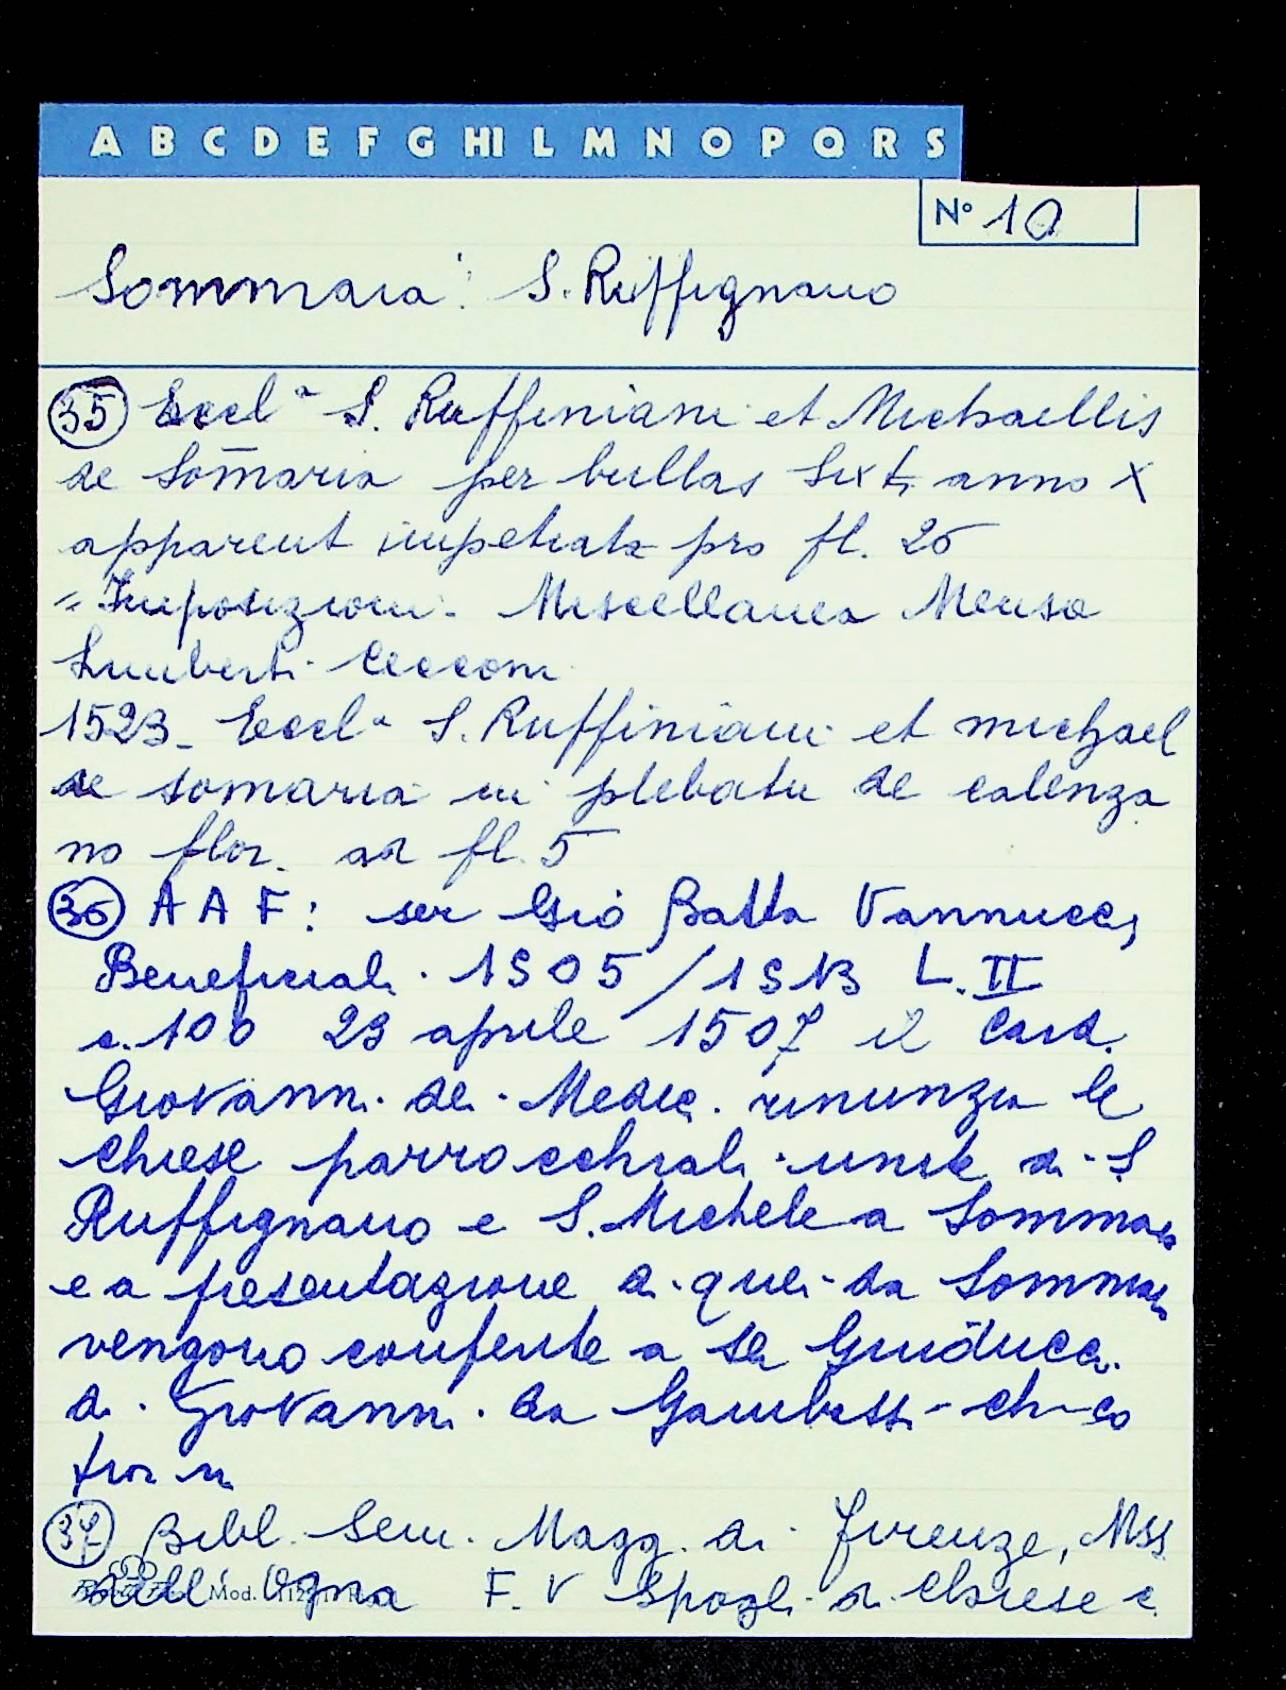 A B C D E F G HI L M N O P Q R S
N° 10
Sommaia: S. Ruffignano
35 Eccl.a S. Ruffiniani et Michaellis
de Som̄aria per bullas Sixti anno X
apparent impetrate pro fl. 26
= Imposizioni. Miscellanea Mensa
Lumberti Cecconi
1523- Eccl.a S. Ruffiniani et michael
de somaria in plebatu de calenza
no flor. ad fl. 5
36 A A F: ser Gio Batta Vannucci
Beneficiali. 1505/1513 L. II
c. 100 23 aprile 1507 il Card.
Giovanni dei Medici rinunzia le
chiese parrocchiali unite di S
Ruffignano e S. Michele a Sommaia
e a presentazione di quei da Sommaia
vengono conferite a ser Guiduccio
di Giovanni da Gambassi
37 Bibl. Sem. Magg. di Firenze, Mss
dell'Ogna F. V Spogli di Chiese c.
Mod.